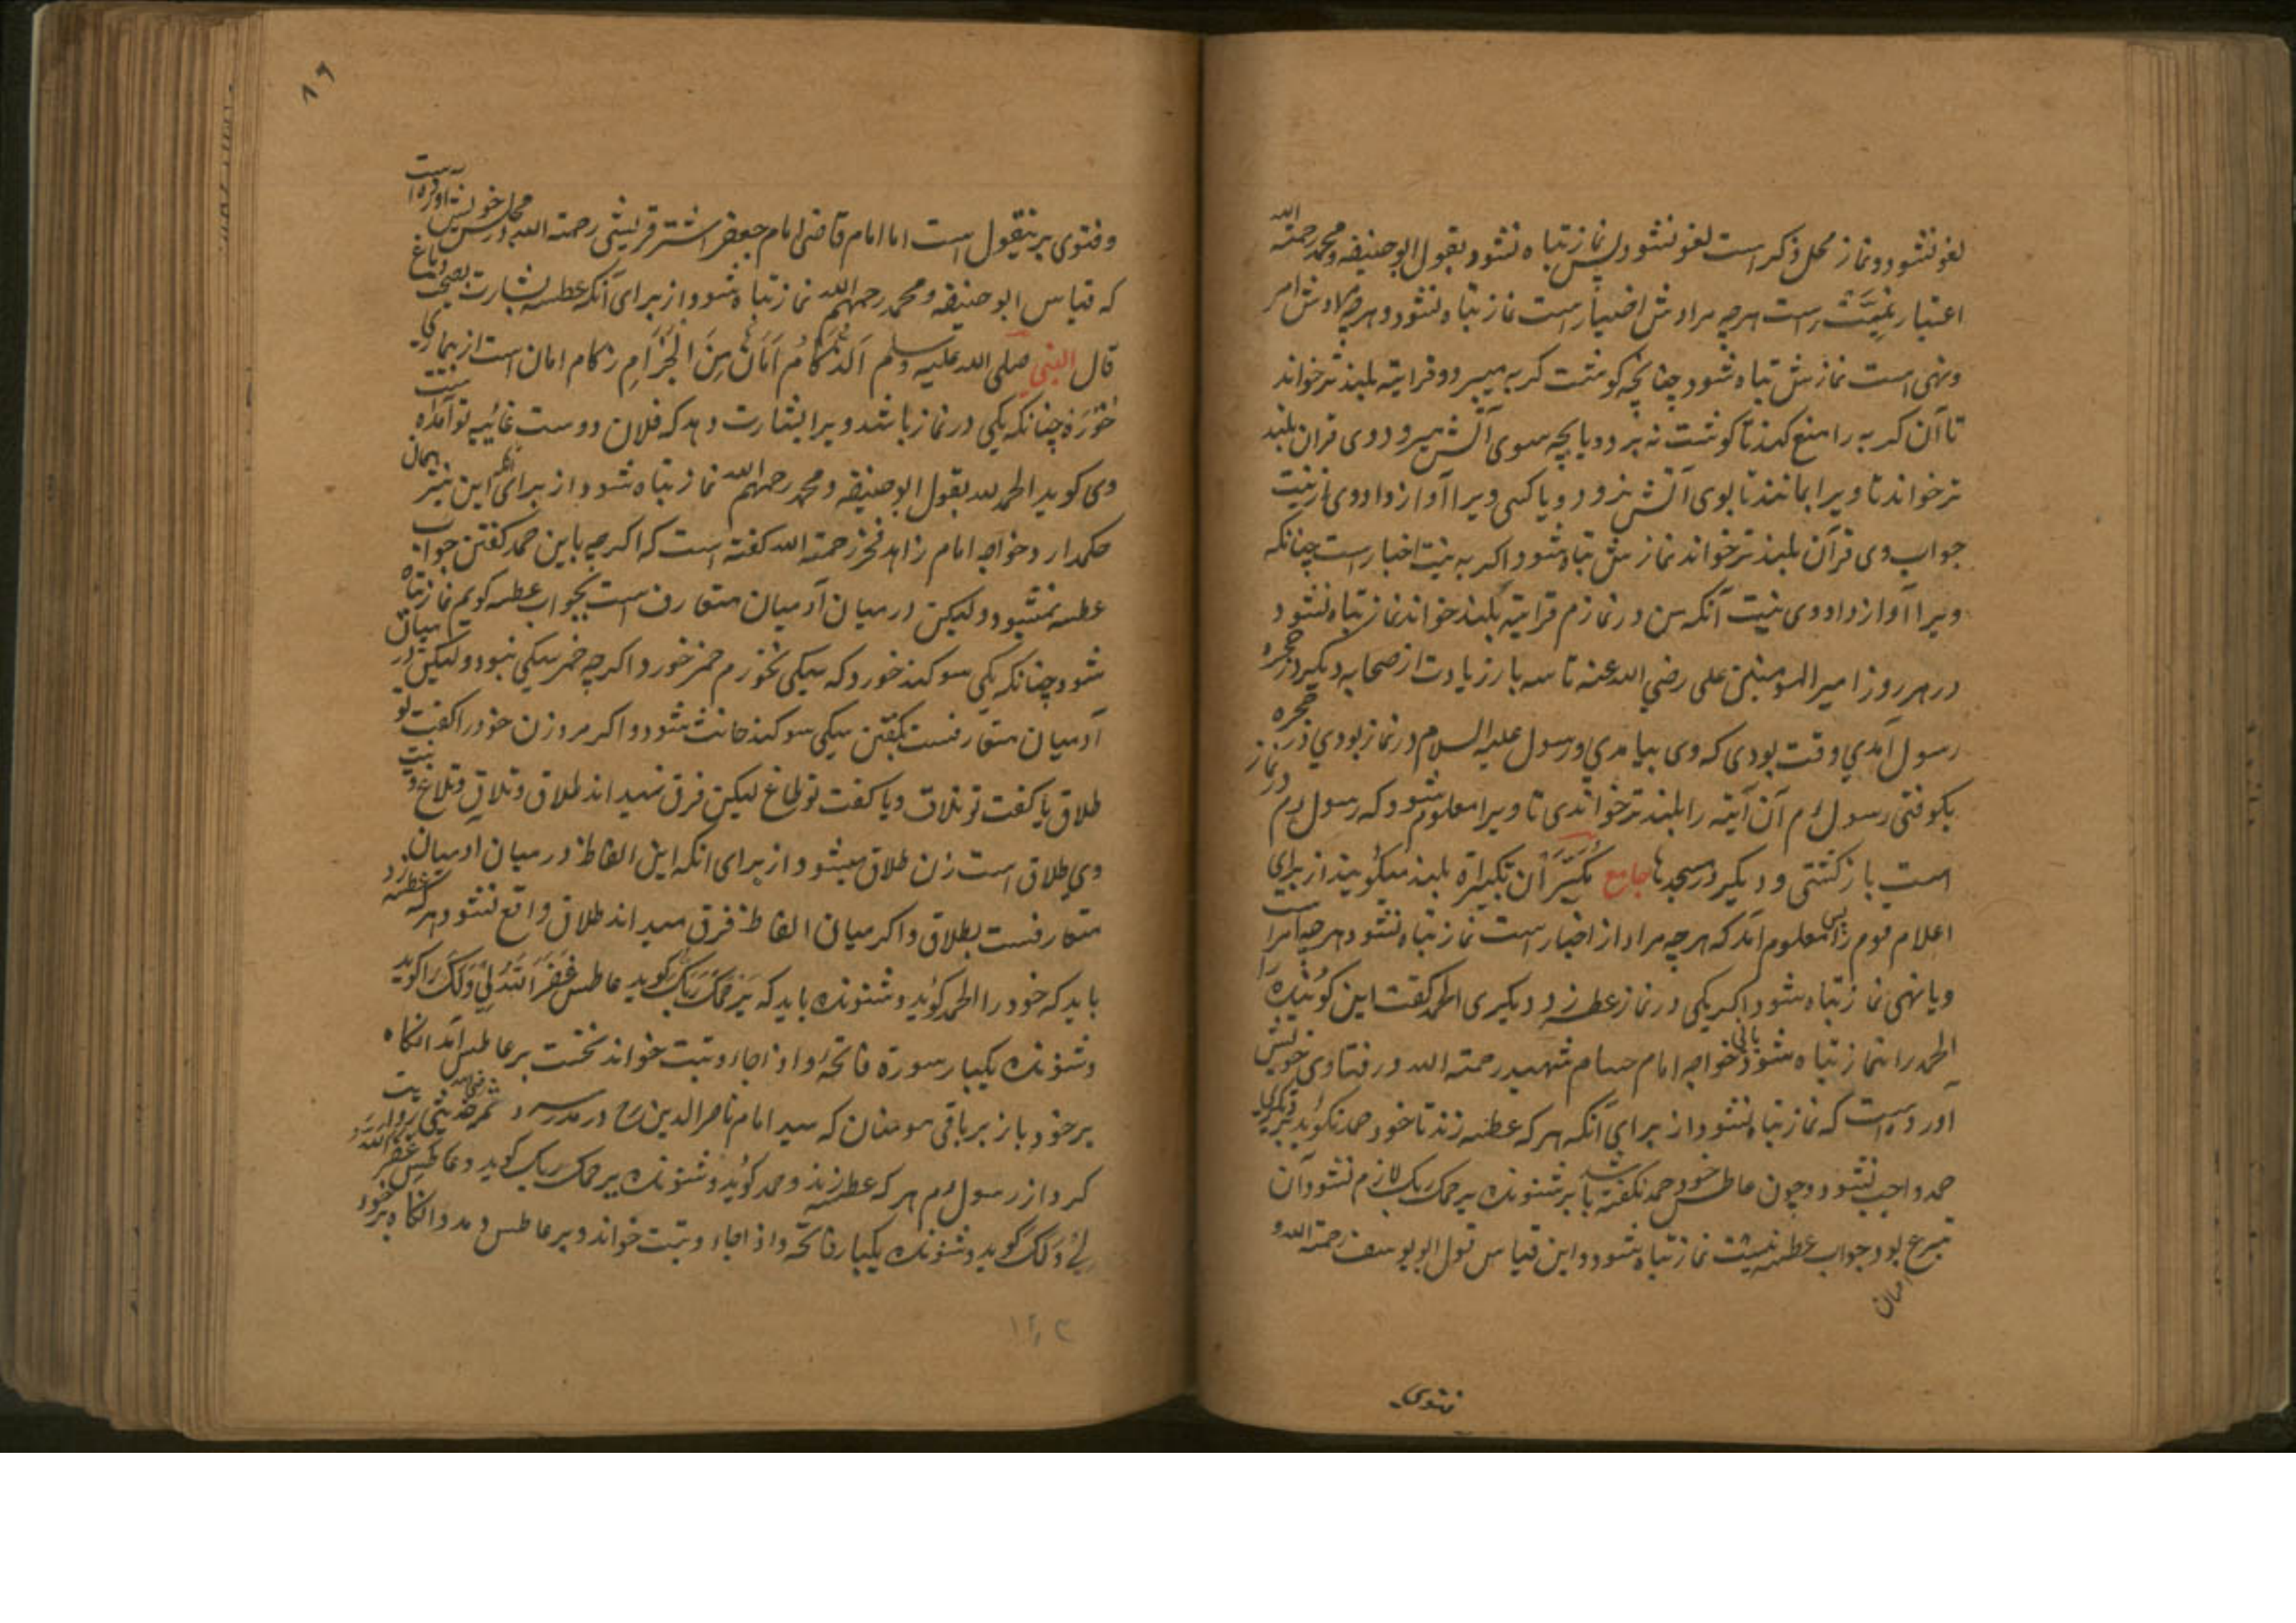 لغو نشود و نماز محل ذکر است لغو نشود پس نماز تباه نشود و بقول ابوحنیفه و محمد رحمته الله
اعتبار نیت راست هرچه مرادش اخبار است نماز تباه نشود و هرچه مرادش امر
و نهی است نمازش تباه شود چنانچه گوشت گربه میبرد و قرایته بلندتر خواند
تا آن گربه را منع کند تا گوشت نه برد و یا بچه سوی آتش میرود وی قران بلند
تر خواند تا ویرا بمانند تا بوی آتش نرود و یا کسی ویرا آواز داد وی از نیت
جواب وی قرآن بلندتر خواند نمازش تباه شود و اگر به نیت اخبار است چنانکه
ویرا آواز داد وی نیت آنکه من در نمازم قرایته بلند خواند نماز تباه نشود
در هر روز امیر المومنین علی رضی الله عنه تا سه بار زیادت از صحابه دیگر در حجره
رسول آمدی وقت بودی که وی بیامدی و رسول علیه السلام در نماز بودی در حجره
بکوفتی رسول م آن آیته را بلندتر خواندی تا ویرا معلوم شود که رسول م در نماز
است باز گشتی و دیگر در مسجدها جامع مکبران تکبیر را بلند میگویند از برای
اعلام قوم پس معلوم آمد که هرچه مراد از اخبار است نماز تباه نشود هرچه امر است
و یا نهی نماز تباه شود اگر یکی در نماز عطسه زد و دیگری الحمد گفت این گوینده را
الحمد را نماز تباه شود خواجه امام حسام شهید رحمته الله در فتاوی خویش
آورده است که نماز تباه نشود از برای آنکه هر که عطسه زند تا خود حمد نگوید بر دیگری
حمد واجب نشود و چون عاطس خود حمد نگفته باشد بر شنونده یرحمک ربک لازم نشود آن
تبرع بود جواب عطسه نیست نماز تباه نشود و این قیاس قول ابو یوسف رحمته الله و
فتوی
۸۶
و فتوی برینقول است اما امام قاضی امام جعفر اشتر قریشی رحمته الله در مجلس خویش آورده است
که قیاس ابوحنیفه و محمد رحمهم الله نماز تباه شود از برای آنکه عطسه بشارت بصحت دماغ
قال النبی صلی الله علیه وسلم اَلزُّکَامُ اَمَانٌ مِنَ الْجُزَامِ زکام امان است از بیماری
خوره چنانکه یکی در نماز باشد ویرا بشارت دهد که فلان دوست غائب تو آمده است
وی گوید الحمد لله بقول ابوحنیفه و محمد رحمهم الله نماز تباه شود از برای این نیز همان
حکم دارد و خواجه امام زاهد فخر رحمته الله گفته است که اگرچه باین حمد گفتن جواب
عطسه نمیشود ولیکن در میان آدمیان متعارف است بجواب عطسه گویم نماز تباه
شود چنانکه یکی سوگند خورد که سیکی نخورم خمر خورد اگرچه خمر سیکی نبود ولیکن در میان
آدمیان متعارفست بگفتن سیکی سوگند حانث شود و اگر مرد زن خود را گفت تو
طلاق یا گفت تو تلاق و یا گفت تو طلاغ لیکن فرق نمیداند طلاق و تلاق و تلاغ و نیت
وی طلاق است زن طلاق میشود از برای انکه این الفاظ در میان ادمیان
متعارفست بطلاق و اگر میان الفاظ فرق میداند طلاق واقع نشود هر که عطسه زد
باید که خود را الحمد گوید و شنونده باید که یَرْحَمُکَ رَبُّکَ گوید عاطس غَفَرَ اللّٰهُ لِی وَلَکَ را گوید
و شنونده یکبار سورة فاتحه و اذا جاء و تبت خواند نخست بر عاطس دمد انگاه
بر خود باز بر باقی مومنان که سید امام ناصر الدین رح در مدرسه سمرقند حدیثی روایت
کرد از رسول م هر که عطسه زند و حمد گوید و شنونده یرحمک ربک گوید و عاطس غفر الله
لی ولک گوید و شنونده یکبار فاتحه و اذا جاء و تبت خواند و بر عاطس دمد و انگاه بر خود